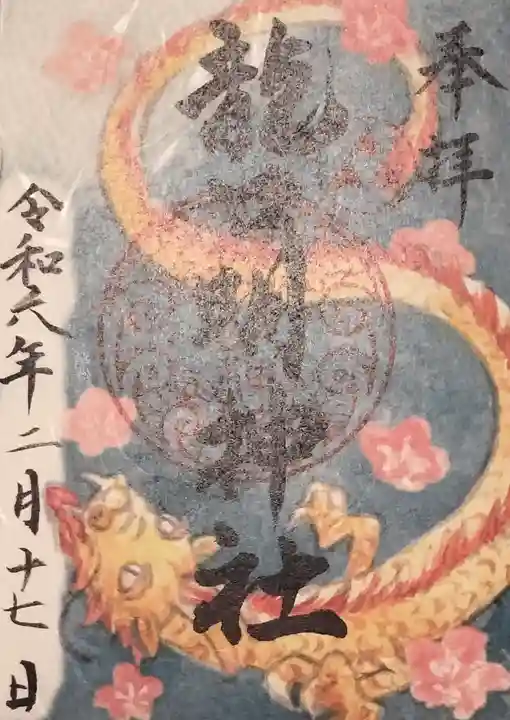 奉拝
龍河明神社
令和六年二月十七日